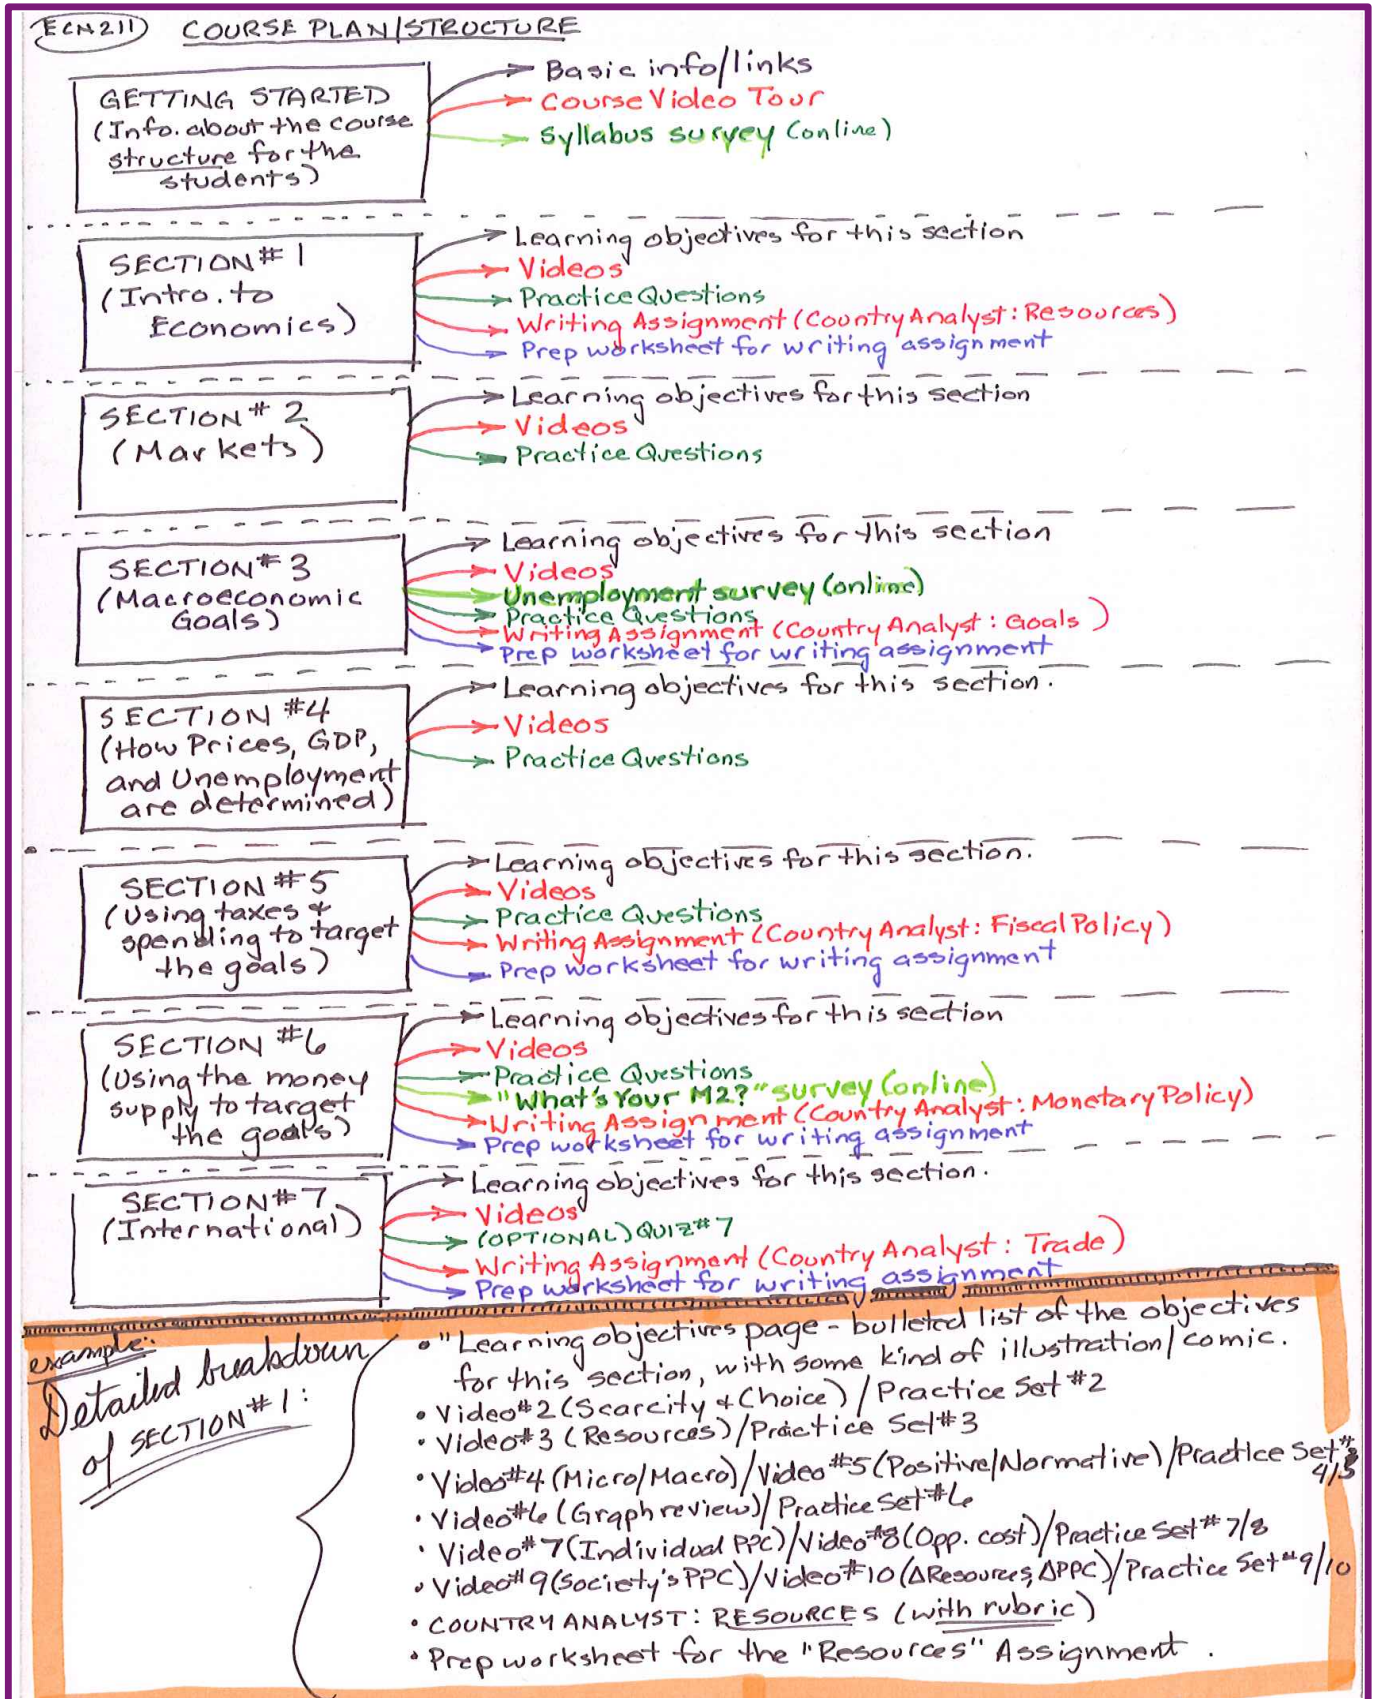 ECN211 COURSE PLAN/STRUCTURE
GETTING STARTED
(Info. about the course
structure for the
students)
Basic info/links
Course Video Tour
Syllabus survey (online)
SECTION #1
(Intro. to
Economics)
Learning objectives for this section
Videos
Practice Questions
Writing Assignment (Country Analyst: Resources)
Prep worksheet for writing assignment
SECTION #2
(Markets)
Learning objectives for this section
Videos
Practice Questions
SECTION #3
(Macroeconomic
Goals)
Learning objectives for this section
Videos
Unemployment survey (online)
Practice Questions
Writing Assignment (Country Analyst: Goals)
Prep worksheet for writing assignment
SECTION #4
(How Prices, GDP,
and Unemployment
are determined)
Learning objectives for this section.
Videos
Practice Questions
SECTION #5
(Using taxes &
spending to target
the goals)
Learning objectives for this section.
Videos
Practice Questions
Writing Assignment (Country Analyst: Fiscal Policy)
Prep worksheet for writing assignment
SECTION #6
(Using the money
supply to target
the goals)
Learning objectives for this section
Videos
Practice Questions
"What's Your M2?" survey (online)
Writing Assignment (Country Analyst: Monetary Policy)
Prep worksheet for writing assignment
SECTION #7
(International)
Learning objectives for this section.
Videos
(OPTIONAL) QUIZ #7
Writing Assignment (Country Analyst: Trade)
Prep worksheet for writing assignment
example:
Detailed breakdown
of SECTION #1:
• "Learning objectives page - bulleted list of the objectives
for this section, with some kind of illustration/comic.
• Video #2 (Scarcity & Choice) / Practice Set #2
• Video #3 (Resources) / Practice Set #3
• Video #4 (Micro/Macro) / Video #5 (Positive/Normative) / Practice Set #
4/5
• Video #6 (Graph review) / Practice Set #6
• Video #7 (Individual PPC) / Video #8 (Opp. cost) / Practice Set #7/8
• Video #9 (Society's PPC) / Video #10 (ΔResources, ΔPPC) / Practice Set #9/10
• COUNTRY ANALYST: RESOURCES (with rubric)
• Prep worksheet for the "Resources" Assignment.